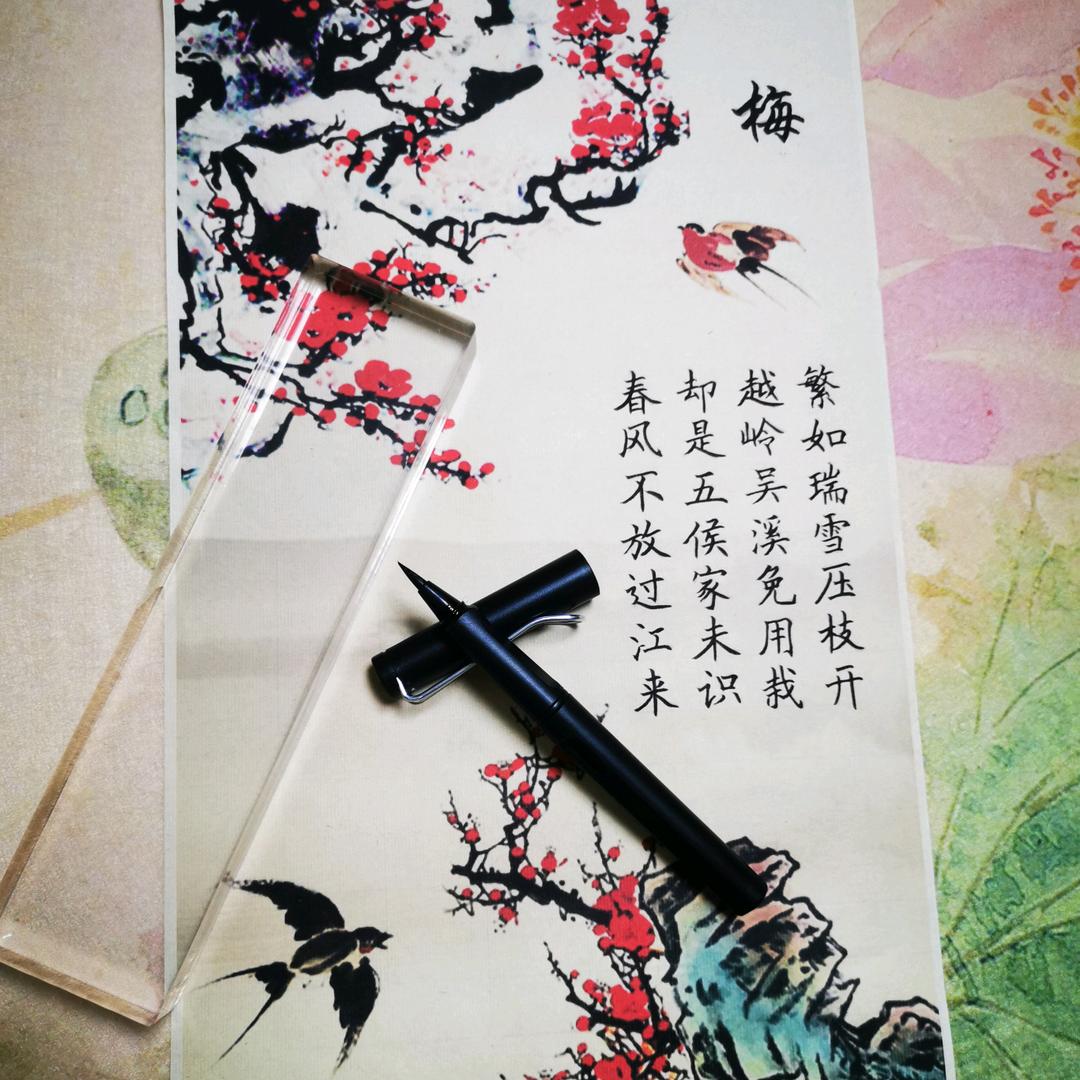 梅
繁如瑞雪压枝开
越岭吴溪免用栽
却是五侯家未识
春风不放过江来